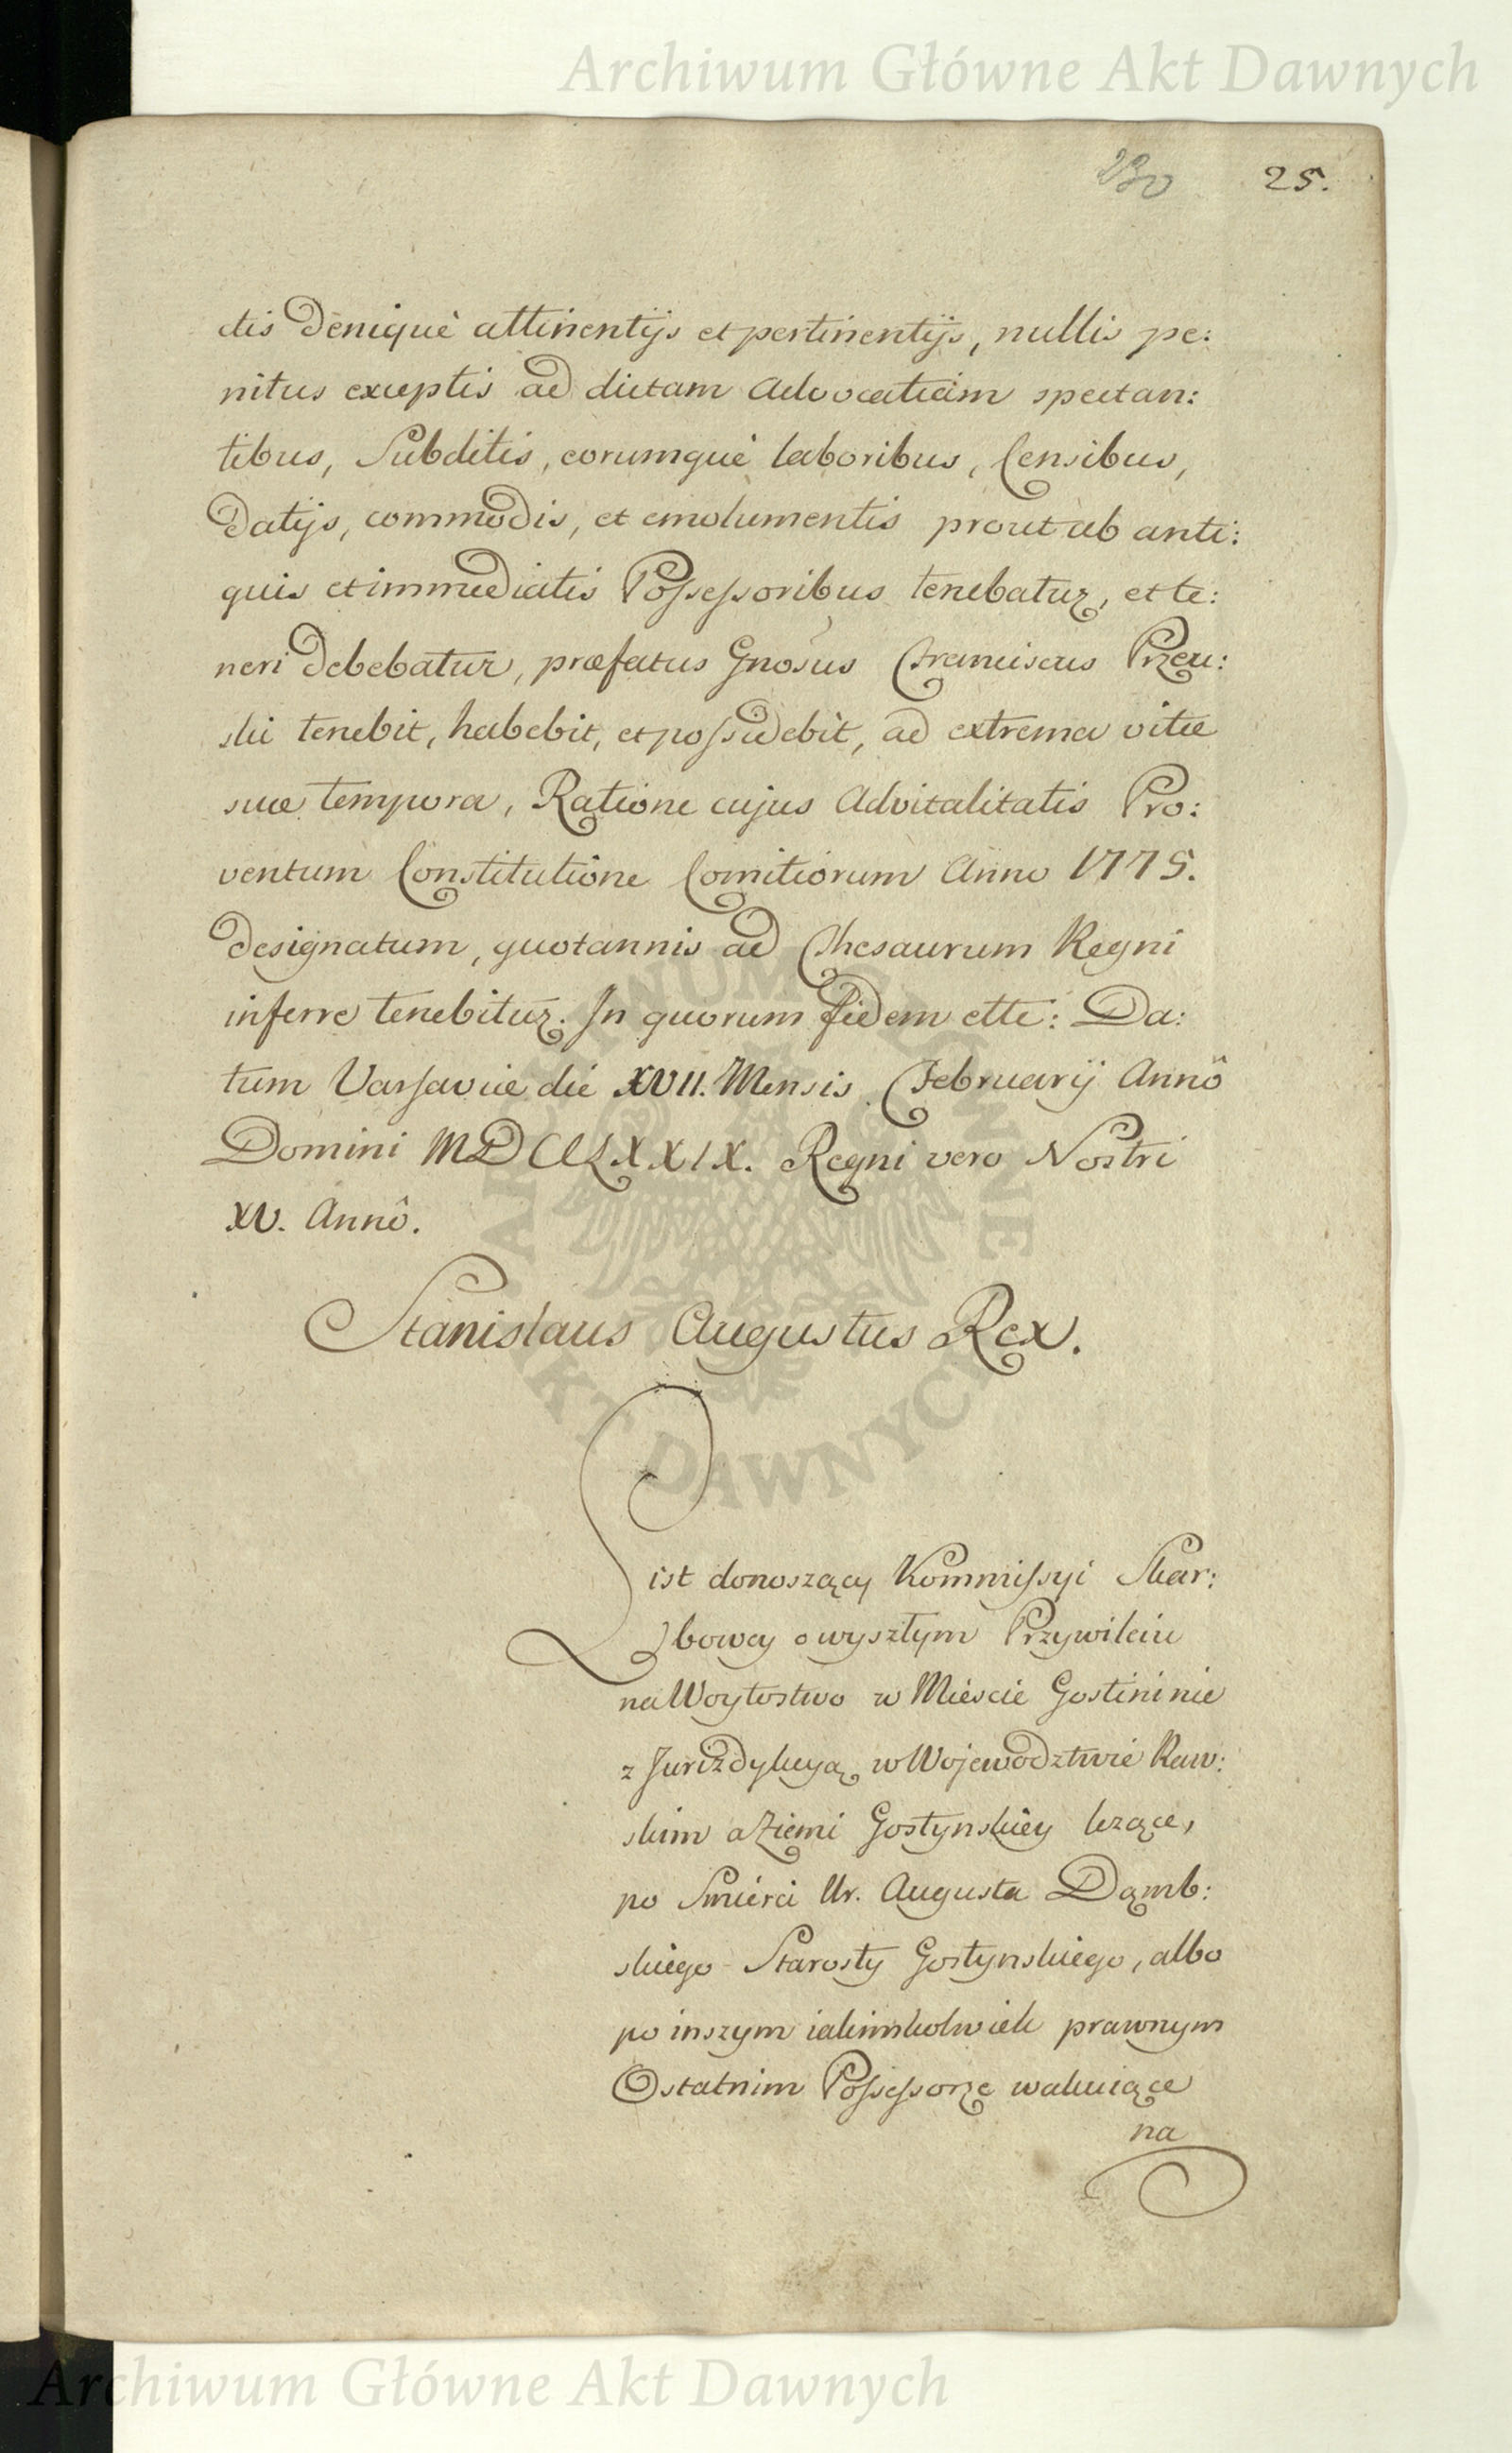 Archiwum Główne Akt Dawnych
230 25.
ctis deniquè attinentijs et pertinentijs, nullis pe:
nitus exceptis ad dictam Advocatiam spectan:
tibus, Subditis, eorumquè laboribus, Censibus,
datijs, commodis, et emolumentis prout ab anti:
quis et immediatis Possessoribus tenebatur, et te:
neri debebatur, præfatus Gnosus Franciscus Przeu:
ski tenebit, habebit, et possidebit, ad extrema vitæ
suæ tempora, Ratione cujus Advitalitatis Pro:
ventum Constitutione Comitiorum Anno 1775.
designatum, quotannis ad Thesaurum Regni
inferre tenebitur. In quorum fidem ette: Da:
tum Varsaviæ die XVII. Mensis Februarij Annô
Domini MDCCLXXIX. Regni vero Nostri
XV. Annô.
Stanislaus Augustus Rex.
List donoszący Kommissyi Skar:
bowey o wyszłym Przywileiu
na Woytostwo w Mieście Gostininie
z Jurizdykcyą w Wojewodztwie Raw:
skim a Ziemi Gostynskiey leżące,
po Smierci Ur. Augusta Dąmb:
skiego Starosty Gostynskiego, albo
po inszym iakimkolwiek prawnym
Ostatnim Possessorze wakuiące
na
ARCHIWUM GŁÓWNE
AKT DAWNYCH
Archiwum Główne Akt Dawnych